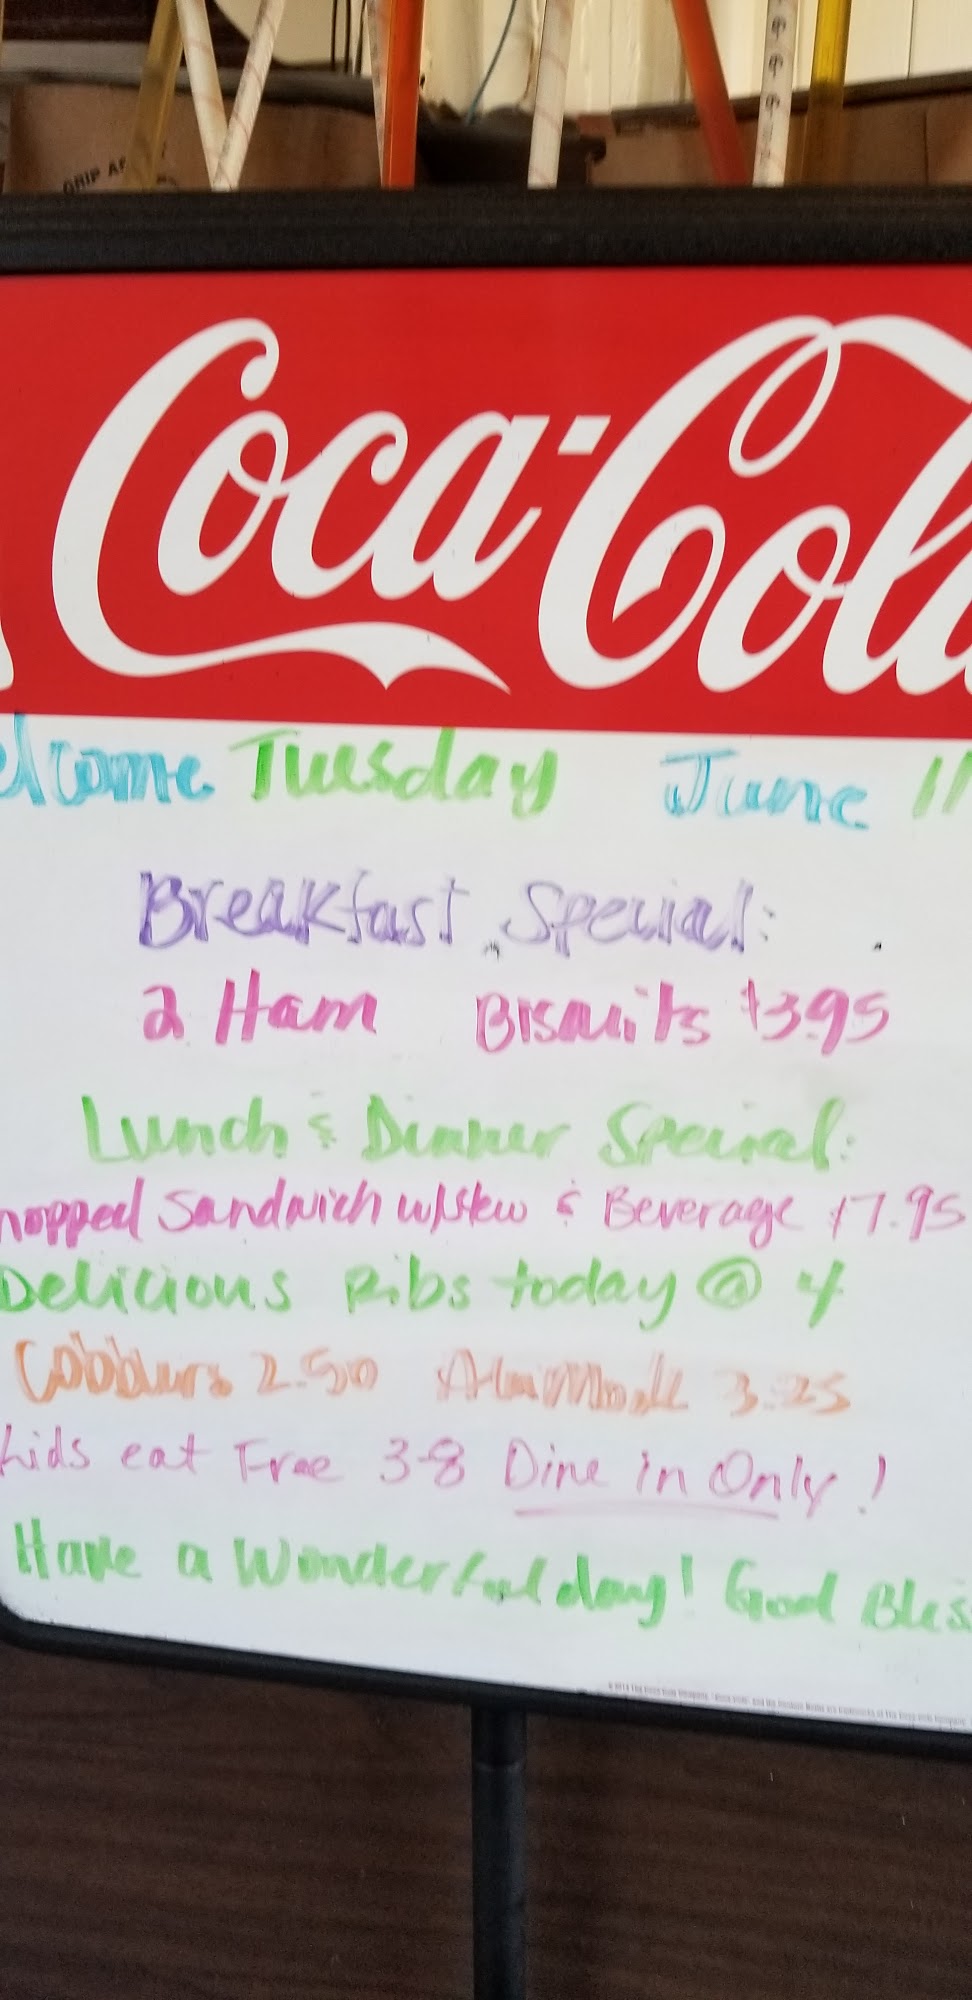 GRIP
Coca-Cola
elcome Tuesday June 11
Breakfast Special:
2 Ham Biscuits $3.95
Lunch & Dinner Special:
hopped Sandwich w/stew & Beverage $7.95
Delicious Ribs today @ 4
Cobblers 2.50 AlaMode 3.25
kids eat Free 3-8 Dine in Only!
Have a Wonderful day! God Bles